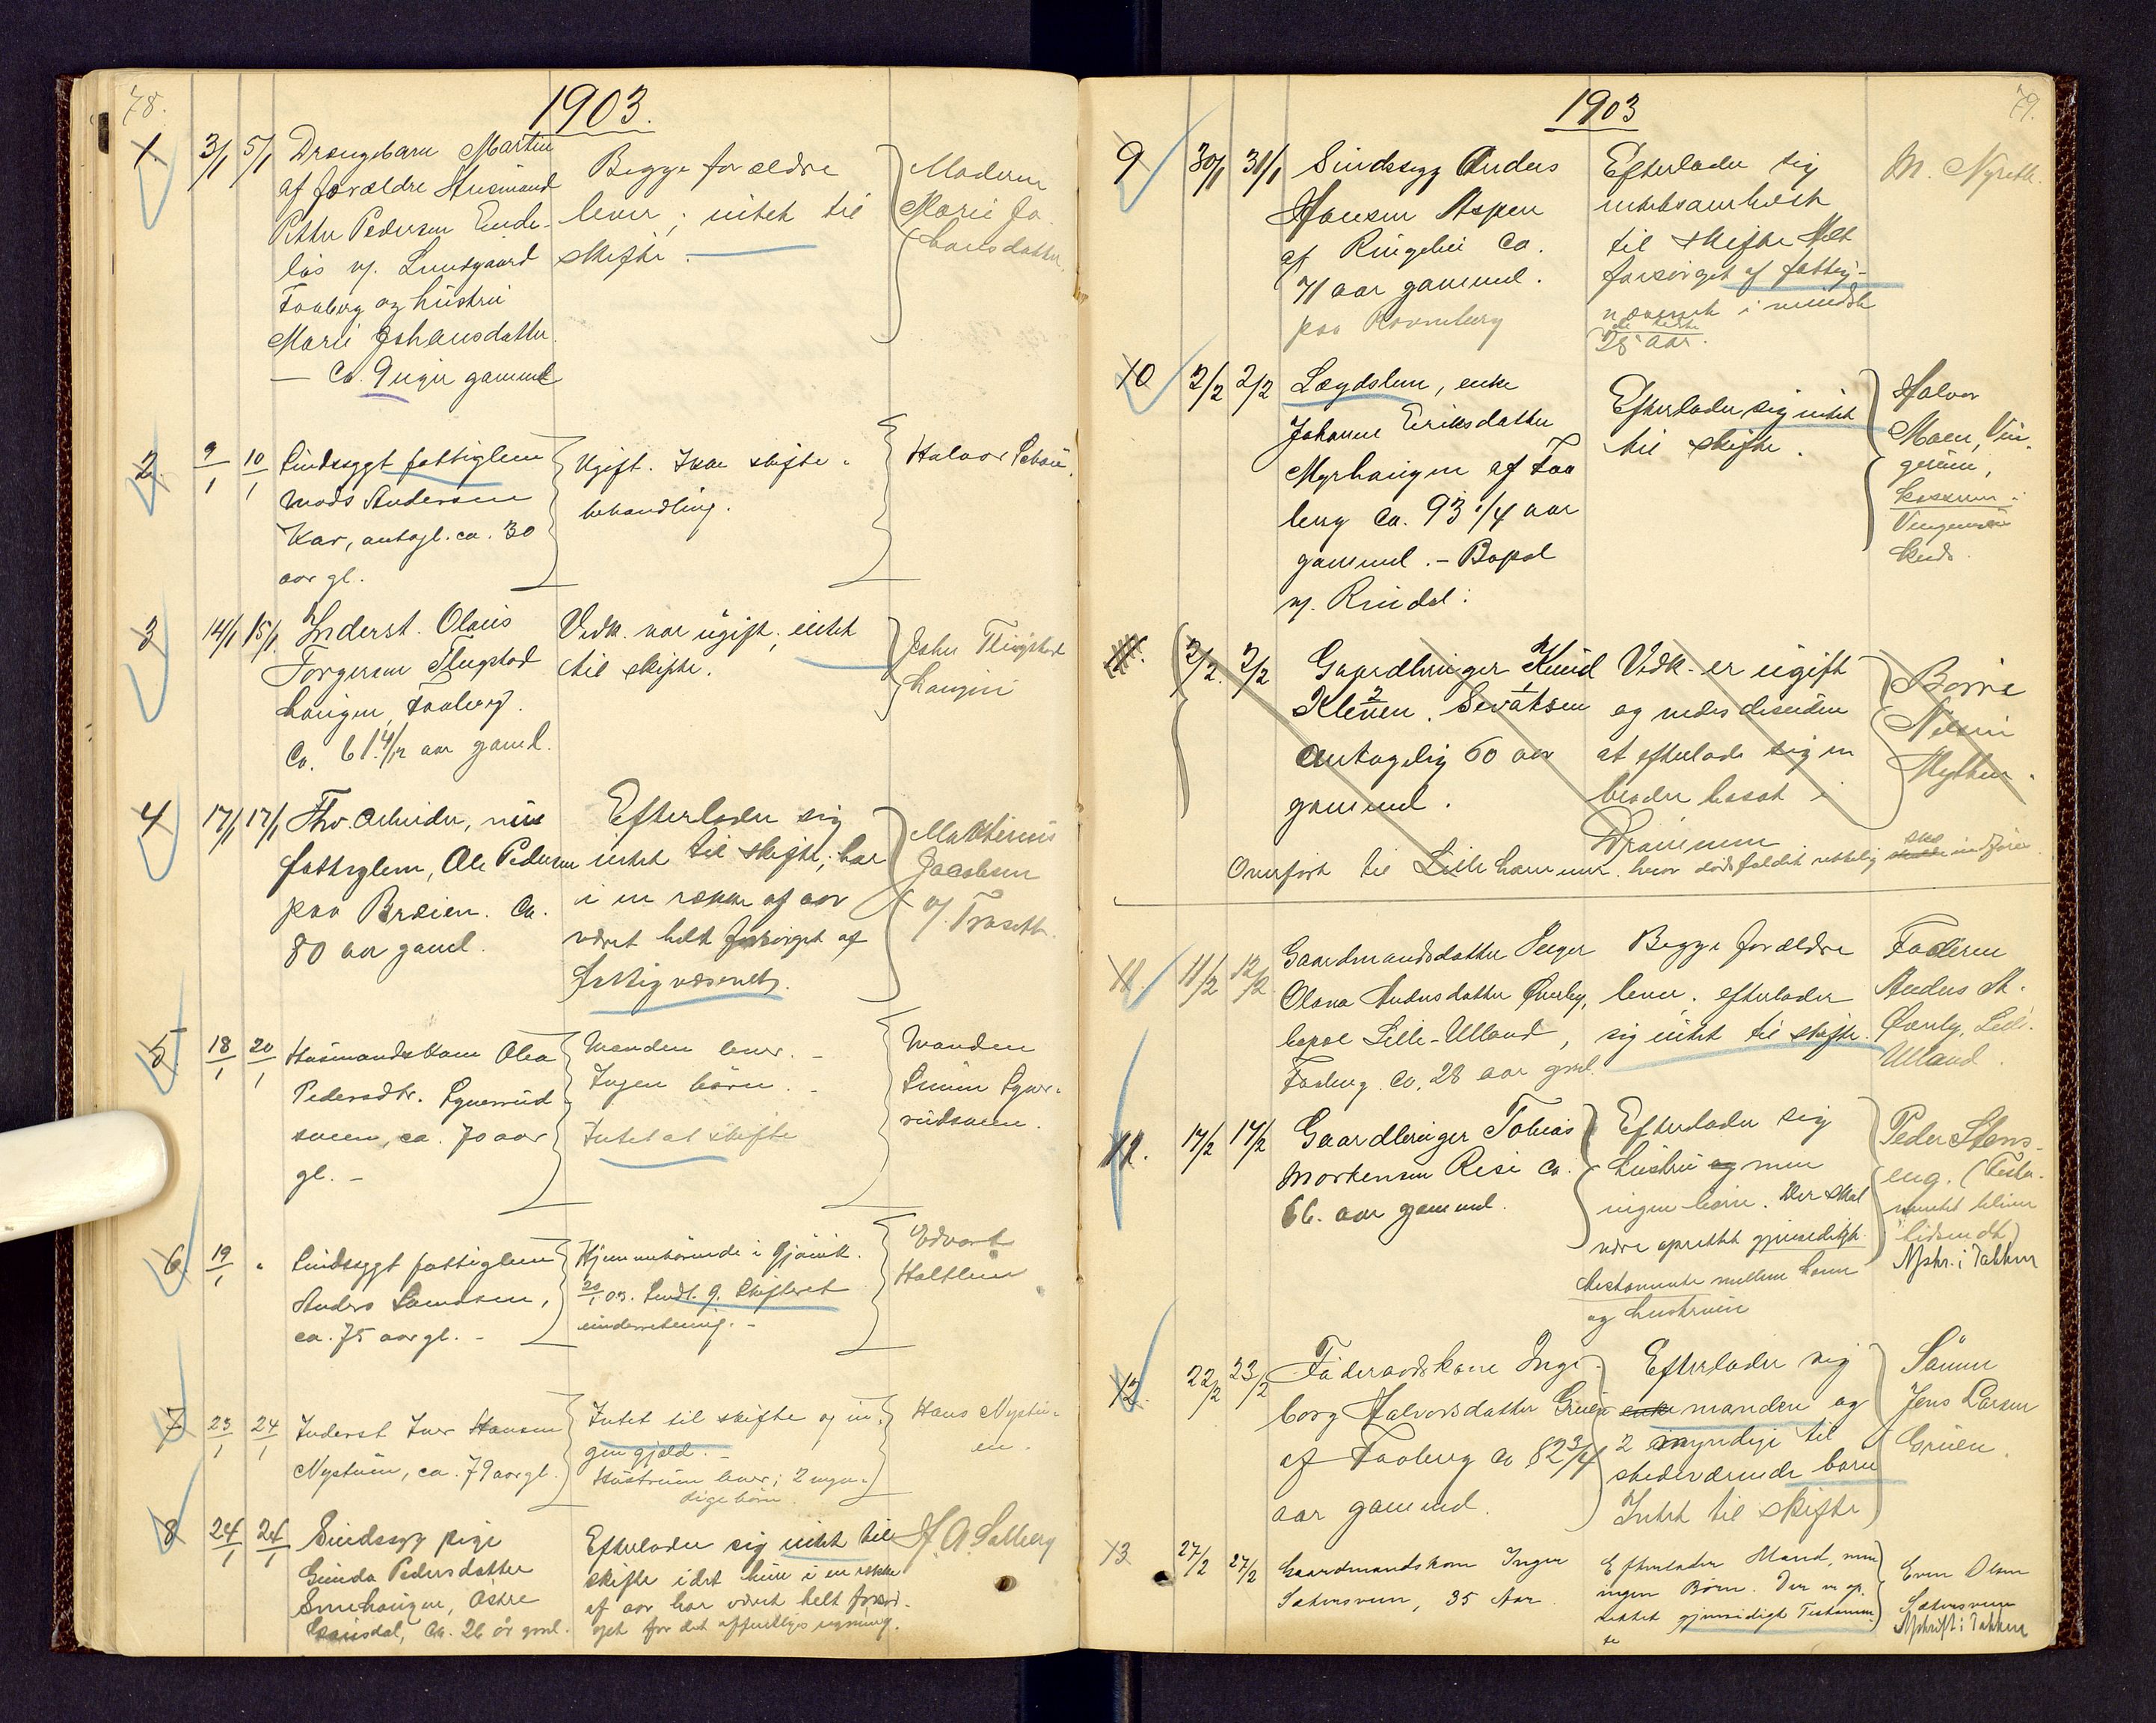 78.
1903.
1. 3/1 5/1 Drengebarn Martin
af forældre Husmand
Petter Pedersen Ende-
løs v/. Lundgaard
Faaberg og hustru
Marie Johansdatter
— Ca. 9 uger gammel
Begge forældre
lever; intet til
skifte.
Moderen
Marie Jo-
hansdatter
2. 9/1 10/1 Sindssygt fattiglem
Mads Andersen
Kar, antagl. ca. 30
aar gl.
Ugift. Ikke skifte-
behandling.
Halvor
3 14/1 15/1 Inderst. Olaus
Torgersen Flugstad
haugen, Faaberg.
Ca. 61 4/12 aar gaml.
Vedk. var ugift; intet
til skifte.
John Flugstad
haugen
4 17/1 17/1 Fhv. Arbeider, nu
fattiglem, Ole Pedersen
paa Bræien. Ca.
80 aar gaml.
Efterlader sig
intet til skifte; har
i en række af aar
været helt forsørget af
fattigvæsenet.
Mathinus
Jacobsen
v/. Traseth.
5 18/1 20/1 Husmandskone Olea
Pedersdtr.
sveen, ca. 70 aar
gl. –
Manden lever. –
Ingen børn. –
Intet at skifte
Manden
Simen
rudsveen.
6 19/1 " Sindssygt fattiglem
Anders
ca. 75 aar gl. –
Hjemmehørende i Gjøvik.
20/1 03. Sendt G. Skifteret
underretning. –
Edvart
Holtlien
7 23/1 24/1 Inderst Iver Hansen
Nystuen, ca. 79 aar gl.
Intet til skifte og in-
gen gjæld. –
Hustruen lever; 2 myn-
dige børn.
Hans Nystu-
en.
8 24/1 24/1 Sindssyg pige
Gunda Pedersdatter
Smehaugen, Østre
Gausdal, Ca. 26 år gml.
Efterlader sig intet til
skifte idet hun i en række
af aar har været helt forsør-
get for det offentliges regning.
H. A. Solberg
79.
1903
9 30/1 31/1 Sindssyg Anders
Hansen Aspen
af Ringebu Ca.
71 aar gammel.
paa
Efterlader sig
intetsomhelst
til skifte Helt
forsørget af fattig-
væsenet i mindst
de sidste
25 aar.
M. Nyseth.
10 2/2 2/2 Lægdslem, enke
Johanne Eriksdatter
Myrhaugen af Faa
berg Ca. 93 1/4 aar
gammel. – Bopæl
v/. Rindal.
Efterlader sig intet
til skifte.
Halvor
Moen, Vin-
grom,
11. 3/2. 3/2 Gaardbruger Knud
Kleven. Sevatsen
Antagelig 60 aar
gammel.
Vedk. er ugift
og vides desuden
at efterlade sig en
broder bosat i
Drammen
Børre
Nilsen
Overført til Lillehammer, hvor dødsfaldet rettelig skal indføres
11. 11/2 12/2 Gaardmandsdatter Inger
Olana Andersdatter Øverby,
bopæl Lille-Ulland,
Faaberg. Ca. 28 aar gml.
Begge forældre
lever, efterlader
sig intet til skifte.
Faderen
Anders M.
Øverby, Lille-
Ulland.
11. 17/2 17/2 Gaardbruger Tobias
Mortensen Rise Ca.
66. aar gammel.
Efterlader sig
hustru og men
ingen børn. Der skal
være oprettet gjensidigt
testamente mellem ham
og hustruen
Peder Stens-
eng. (Testa-
mentet bliver
Afskr. i Pakken
12. 22/2 23/2 Føderaadskone Inge-
borg Halvorsdatter Gruen
af Faaberg Ca 82 3/4
aar gammel.
Efterlader sig
enke manden og
2 myndige til
stedeværende børn
Intet til skifte
Sønnen
Jens Larsen
Gruen.
13 27/2 27/2 Gaardmandskone Inger
Sætersveen, 35 Aar.
Efterlader Mand, men
ingen Børn. Der er op-
rettet gjensidigt Testamen-
te
Even Olsen
Sætersveen
Afskrift i Pakken